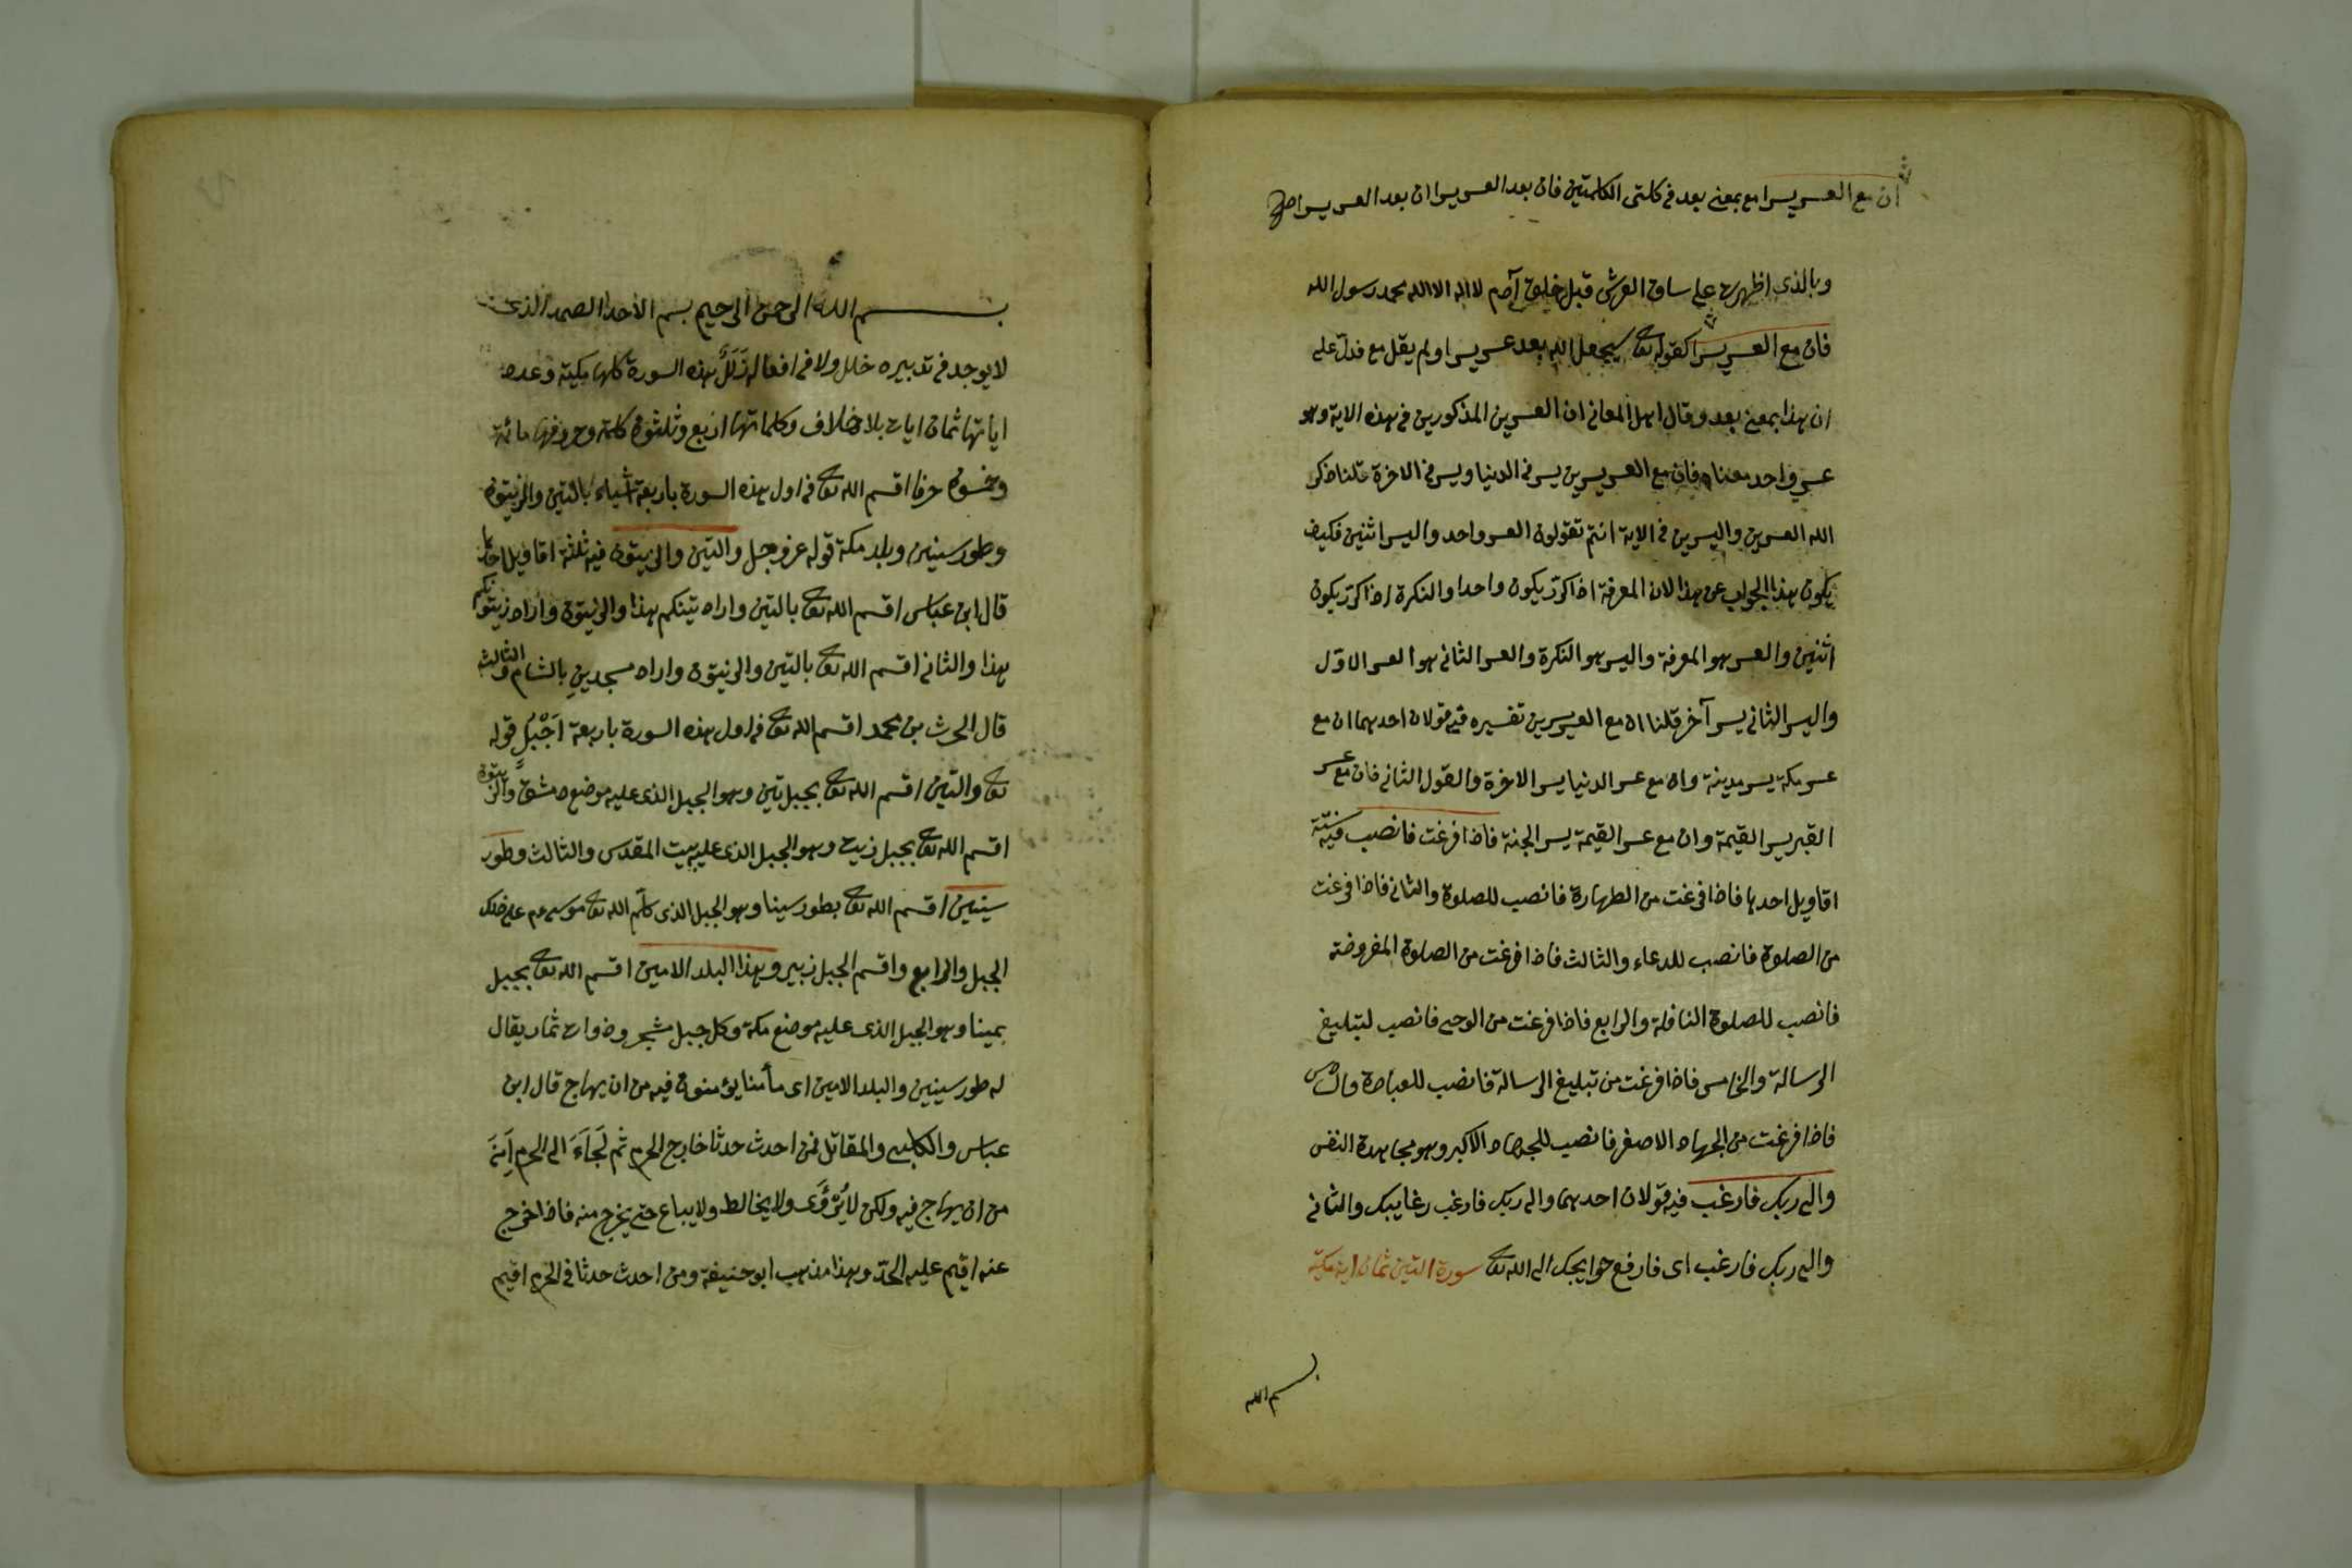 ان مع العسر يسرا مع بمعنى بعد فى كلتى الكلمتين فان بعد العسر يسرا ان بعد العسر يسرا صح
وبالذى اظهرت على ساق العرش قبل خليق آدم لا اله الا الله محمد رسول الله
فان مع العسر يسرا كقوله تعالى سيجعل الله بعد عسر يسرا ولم يقل مع فدل على
ان هذا بمعنى بعد وقال اهل المعانى ان العسرين المذكورين فى هذه الاية وهو
عسر واحد معناه فان مع العسر يسرين يسر فى الدنيا ويسر فى الاخرة قلنا ذكر
الله العسرين واليسرين فى الاية انتم تقولون العسر واحد واليسر اثنين فكيف
يكون هذا الجواب عن هذا لان المعرفة اذا كرّر يكون واحدا والنكرة اذا كرّر يكون
اثنين والعسر هو المعرفة واليسر هو النكرة والعسر الثانى هو العسر الاوّل
واليسر الثانى يسر آخر قلنا ان مع العسر يسرين تفسيره فيه قولان احدهما ان مع
عسر مكة يسر مدينة وان مع عسر الدنيا يسر الاخرة والقول الثانى فان مع عسر
القبر يسر القيمة وان مع عسر القيمة يسر الجنة فاذا فرغت فانصب فيه ستة
اقاويل احدها فاذا فرغت من الطهارة فانصب للصلوة والثانى فاذا فرغت
من الصلوة فانصب للدعاء والثالث فاذا فرغت من الصلوة المفروضة
فانصب للصلوة النافلة والرابع فاذا فرغت من الوحى فانصب لتبليغ
الرسالة والخامس فاذا فرغت من تبليغ الرسالة فانصب للعبادة والسادس
فاذا فرغت من الجهاد الاصغر فانصب للجهاد الاكبر وهو مجاهدة النفس
والى ربك فارغب فيه قولان احدهما والى ربك فارغب رغايبك والثانى
والى ربك فارغب اى فارفع حوايجك الى الله تعالى سورة التين ثمان اية مكية
بسم الله
بسم الله الرحمن الرحيم بسم الاحد الصمد الذى
لا يوجد فى تدبيره خلل ولا فى افعاله زَلَلٌ هذه السورة كلها مكية وعدد
اياتها ثمان ايات بلا خلاف وكلماتها اربع وثلثون كلمة وحروفها مائة
وخمسون حرفا اقسم الله تعالى فى اول هذه السورة باربعة اشياء بالتين والزيتون
وطور سينين وبلد مكة قوله عز وجل والتين والزيتون فيه ثلثة اقاويل احدها
قال ابن عباس اقسم الله تعالى بالتين واراد تينكم هذا والزيتون واراد زيتونكم
هذا والثانى اقسم الله تعالى بالتين والزيتون واراد مسجدين بالشام والثالث
قال الحرث بن محمد اقسم الله تعالى فى اول هذه السورة باربعة اَجْبُلٍ قوله
تعالى والتين اقسم الله تعالى بجبل تين وهو الجبل الذى عليه موضع دمشق والزيتون
اقسم الله تعالى بجبل زيت وهو الجبل الذى عليه بيت المقدس والثالث وطور
سينين اقسم الله تعالى بطور سينا وهو الجبل الذى كلّم الله تعالى موسى عم على ذلك
الجبل والرابع واقسم الجبل زبير وهذا البلد الامين اقسم الله تعالى بجبل
بمينا وهو الجبل الذى عليه موضع مكة وكل جبل مشجر وذوات ثمار يقال
له طور سينين والبلد الامين اى مأمنا يؤمنون فيه من ان يهاج قال ابن
عباس والكلبى والمقاتل فمن احدث حدثا خارج الحرم ثم لَجَاءَ الى الحرم اَمِنَ
من ان يهاج فيه ولكن لا يُؤْوَى ولا يخالط ولا يباع حتى يخرج منه فاذا خرج
عنه اقيم عليه الحدّ وهذا مذهب ابو حنيفة ومن احدث حدثا فى الحرم اقيم